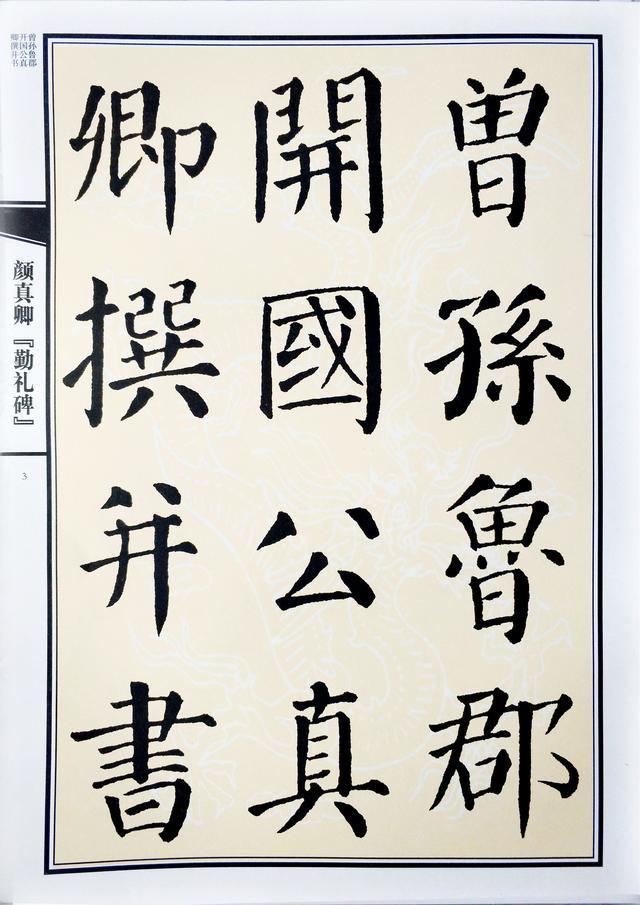 曾孫魯郡
開國公真
卿撰并書
曾孙鲁郡
开国公真
卿撰并书
颜真卿『勤礼碑』
3